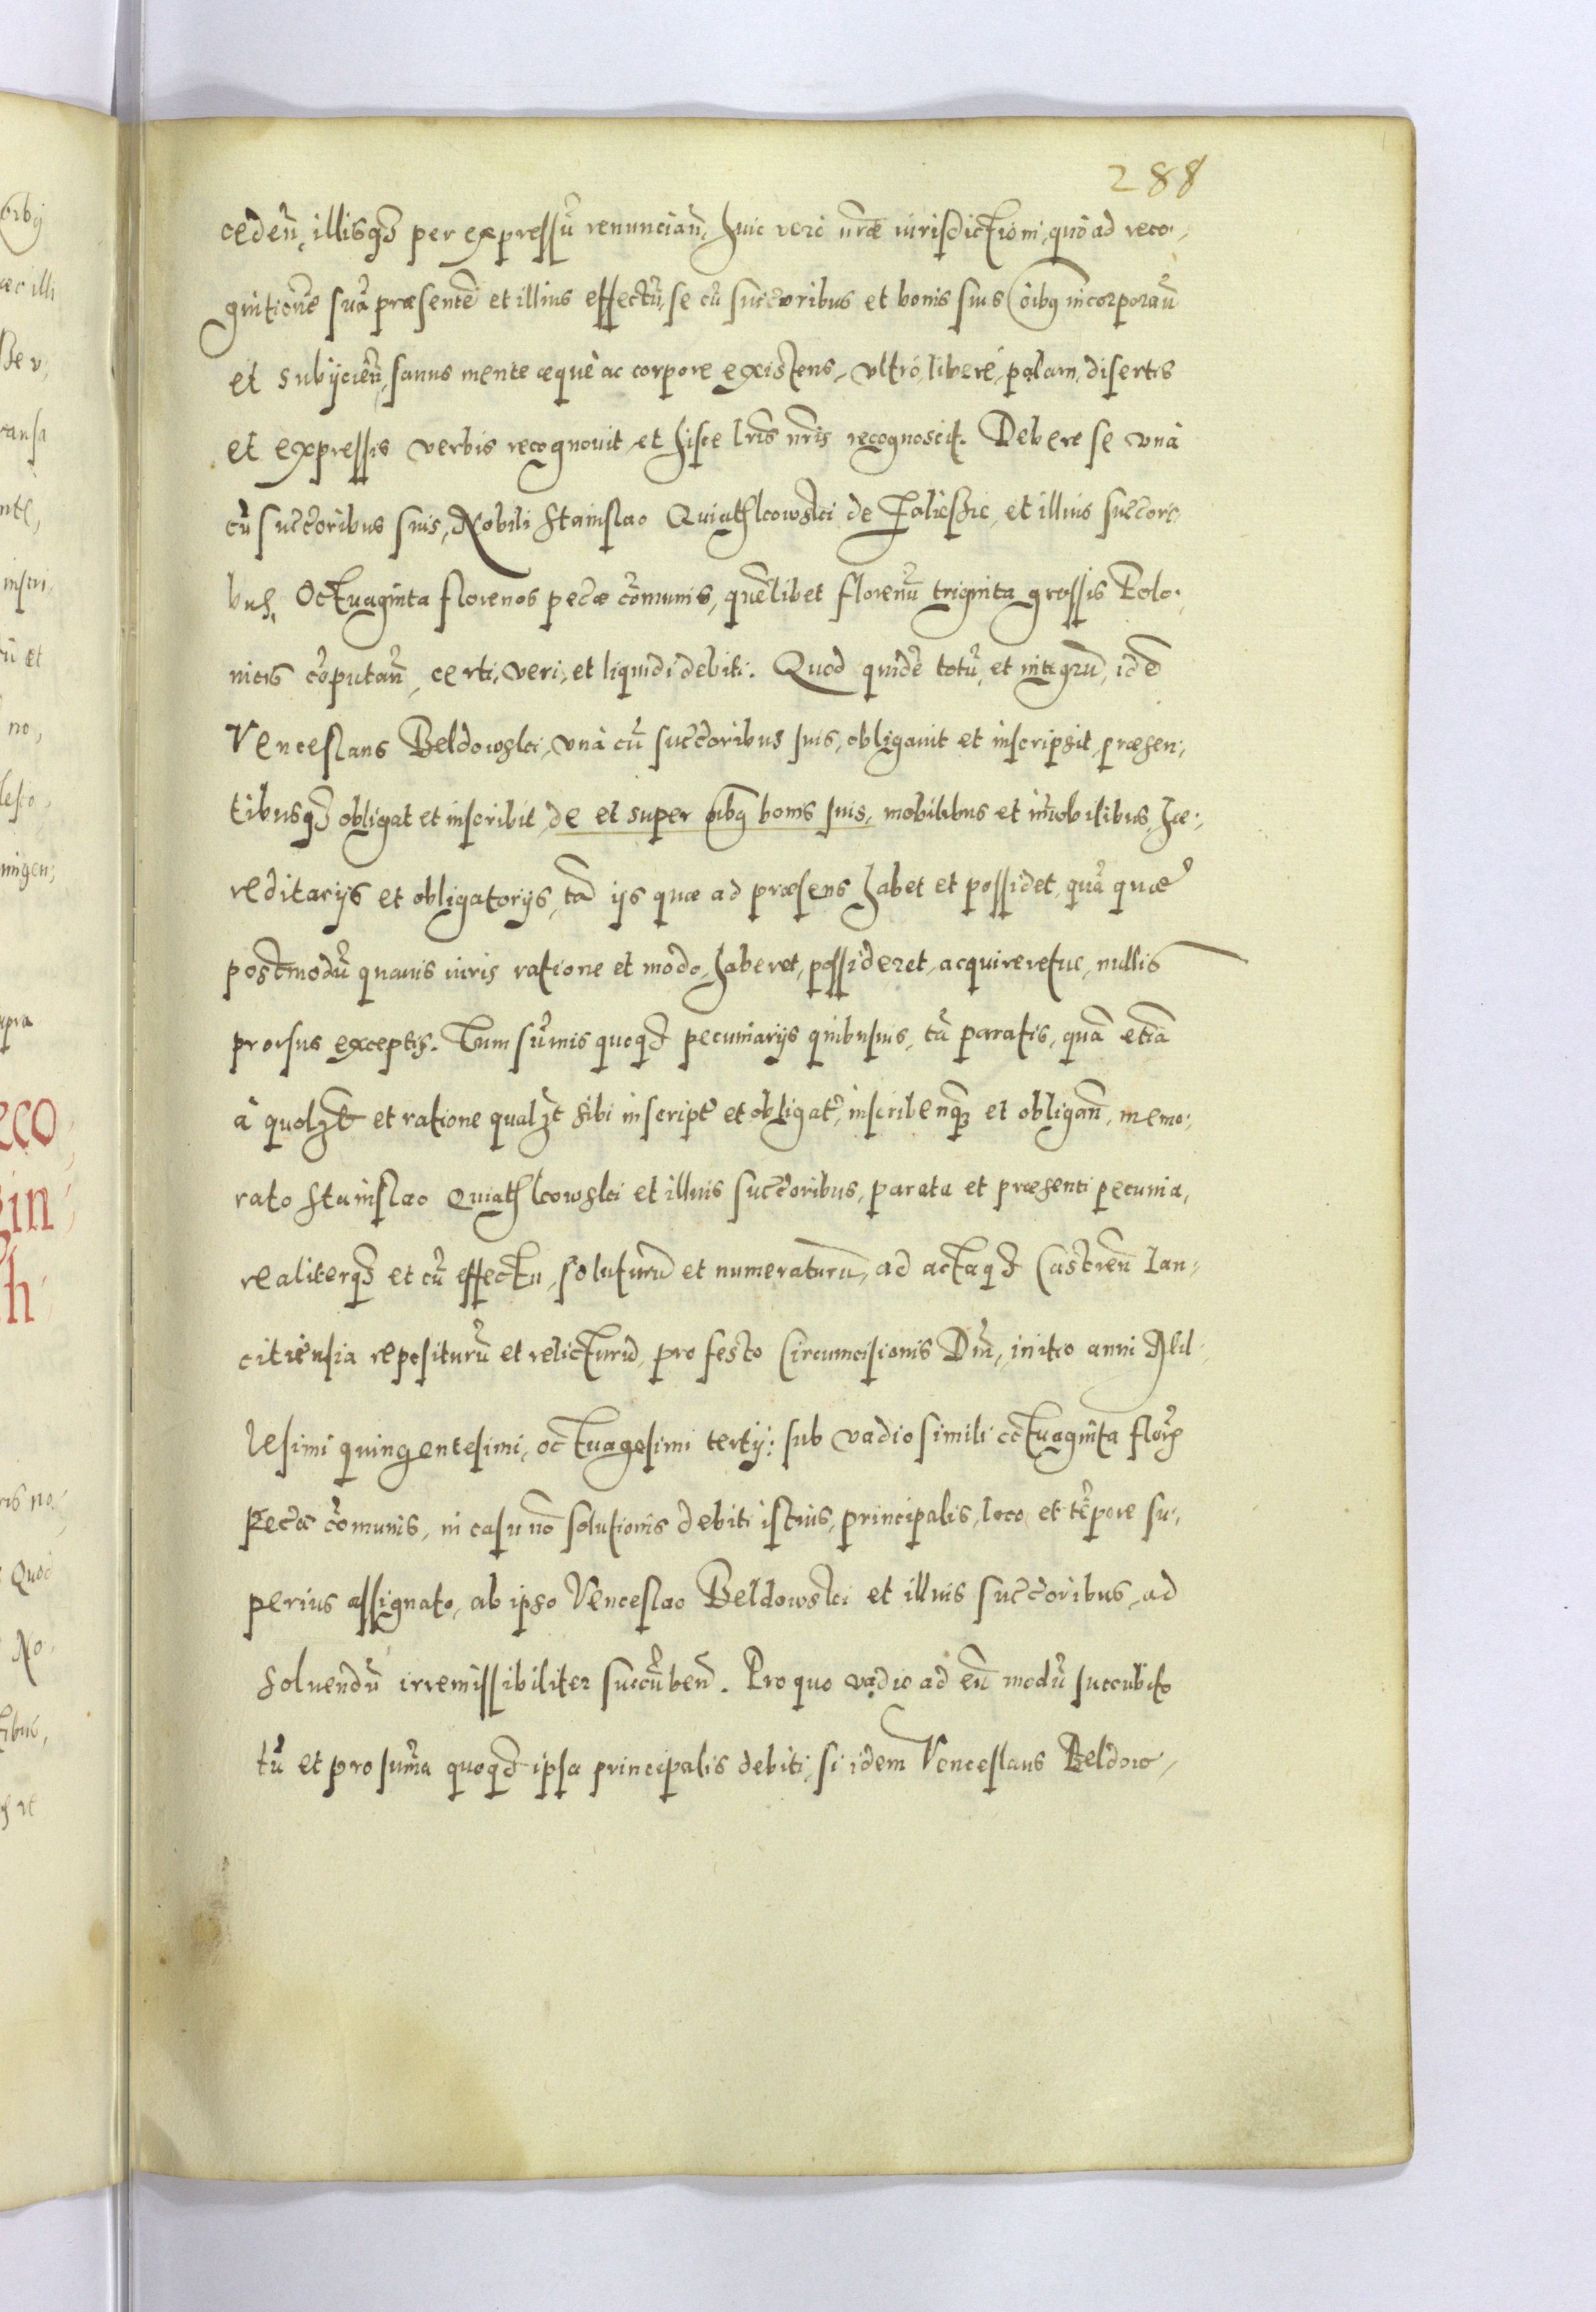 288
cedeñ, illisq3 per expressũ renunciañ, huic vero nr̃æ iurisdictioni, quò ad reco-
gnitionẽ suã præsentẽ et illius effectũ, se cũ succ̃oribus et bonis suis õibq incorporañ
et subijcieñ, sanus mente æquè ac corpore existens, vltrò, liberè, palam, disertis
et expressis verbis recognouit et hisce lr̃is nr̃is recognoscit. Debere se vnà
cũ succ̃oribus suis, Nobili Stanislao Quiathkowski de et illius succ̃ori
bus, Octuaginta florenos pec̃æ cõmunis, quẽlibet florenũ triginta grossis Polo-
nicis cõputañ, certi, veri, et liquidi debiti. Quod quidẽ totũ, et integrũ, idẽ
Venceslaus Beldowski, vnà cũ succ̃oribus suis, obligauit et inscripsit, præsen-
tibusq3 obligat et inscribit, de et super oĩbq bonis suis, mobilibus et im̃obilibus, hæ-
reditarijs et obligatorijs, tã ijs quæ ad præsens habet et possidet, quã quæ
postmodũ quauis iuris ratione et modo, haberet, possideret, acquireretue, nullis
prorsus exceptis. Tum sum̃is quoq3 pecuniarijs quibusuis, tã paratis, quã etiã
à quolzt et ratione qualzt sibi inscript̃ et obligat̃, inscribenq3 et obligañ, memo-
rato Stanislao Quiathkowski et illius succ̃oribus, parata et præsenti pecunia,
realiterq3 et cũ effectu, soluturũ et numeraturũ, ad actaq3 Castreñ Lan-
citiensia repositurũ et relicturũ, pro festo Circumcisionis Dñi, initio anni Mil-
lesimi quingentesimi, octuagesimi tertij: sub vadio simili octuaginta floꝝ
pec̃æ cõmunis, in casu nõ solutionis debiti istius, principalis, loco et tẽpore su-
perius assignato, ab ipso Venceslao Beldowski et illius succ̃oribus, ad
soluendũ irremissibiliter succũbeñ. Pro quo vadio ad eũ modũ succubito
tũ et pro sum̃a quoq3 ipsa principalis debiti, si idem Venceslaus Beldow-